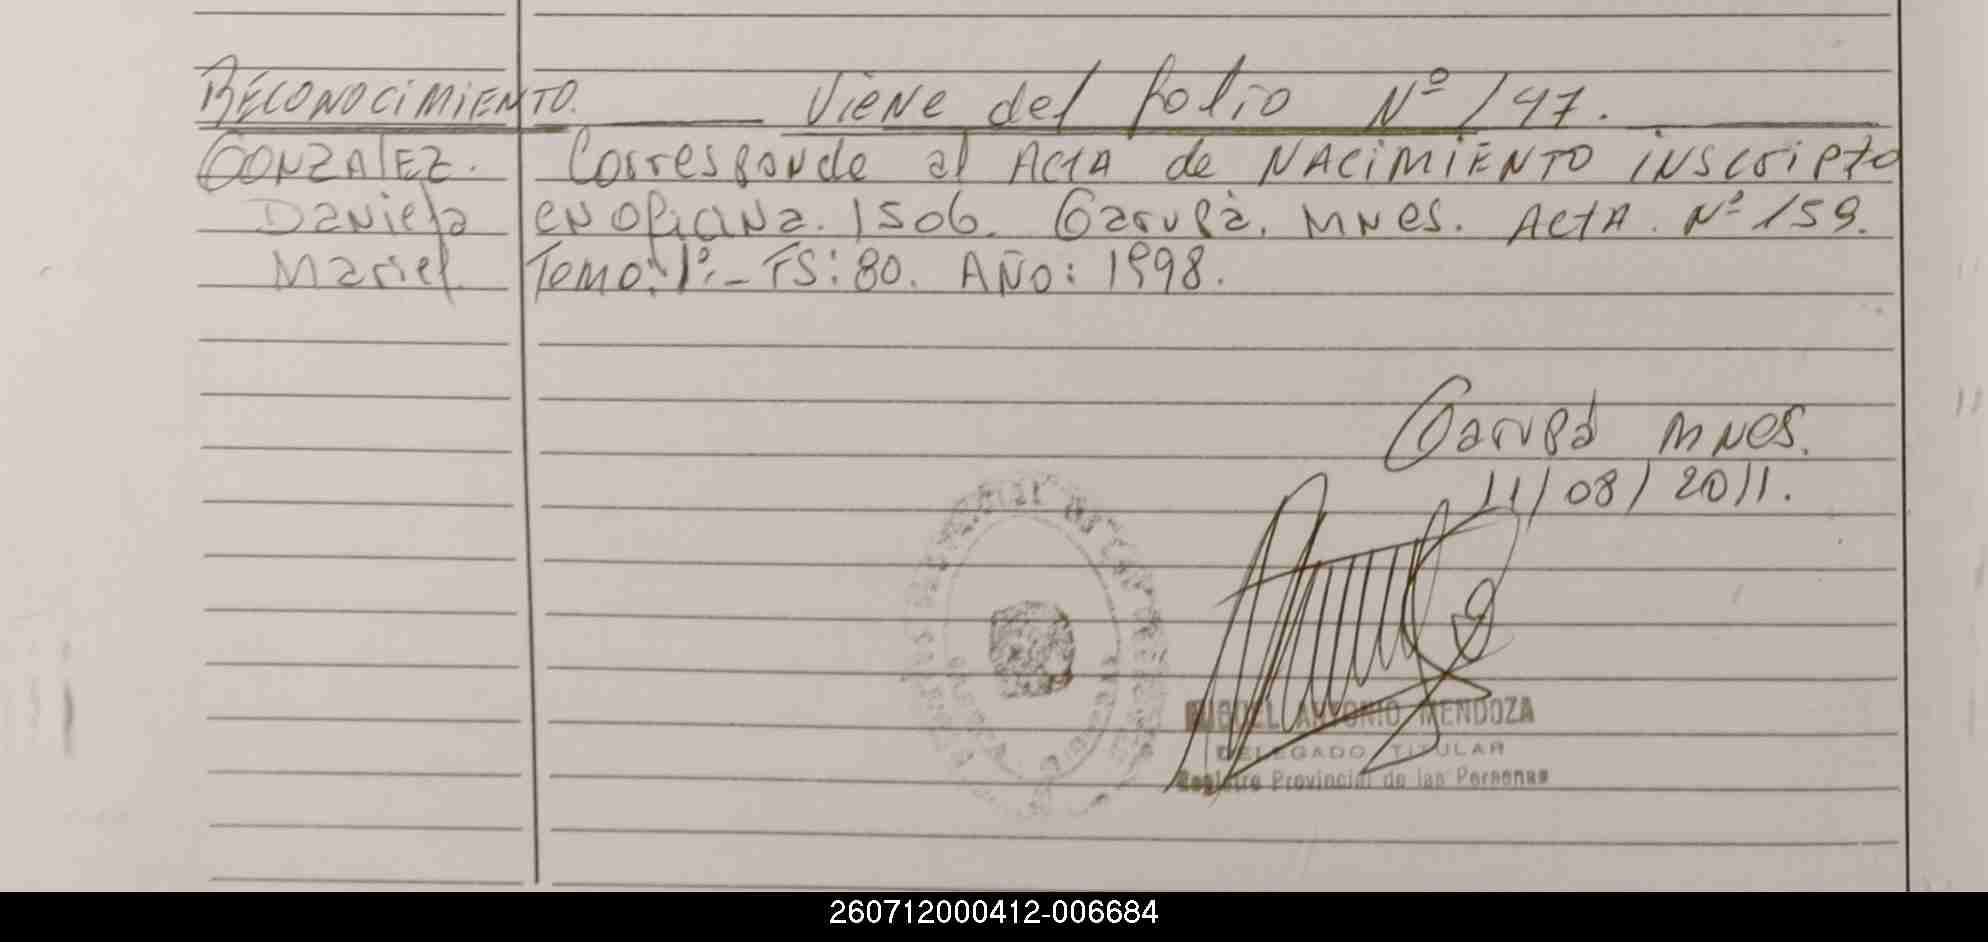 RECONOCIMIENTO. Viene del folio Nº 147.
GONZALEZ. Corresponde al ACTA de NACIMIENTO inscripto
Daniela en oficina. 1506. Garupá. MNES. ACTA. Nº 159.
Mariel. Tomo: 1º.- FS: 80. AÑO: 1998.
Garupá MNES.
11/08/2011.
MIGUEL ANTONIO MENDOZA
DELEGADO TITULAR
Registro Provincial de las Personas
260712000412-006684